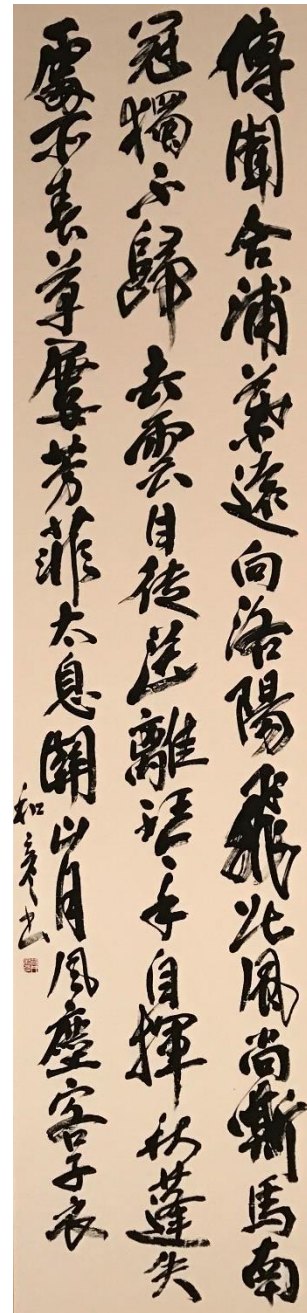 傳聞合浦葉遠向洛陽飛北風尚嘶馬南
冠獨不歸去雲目徒送離琴手自揮秋蓬失
處所春草屢芳菲太息關山月風塵客子衣
和彦书